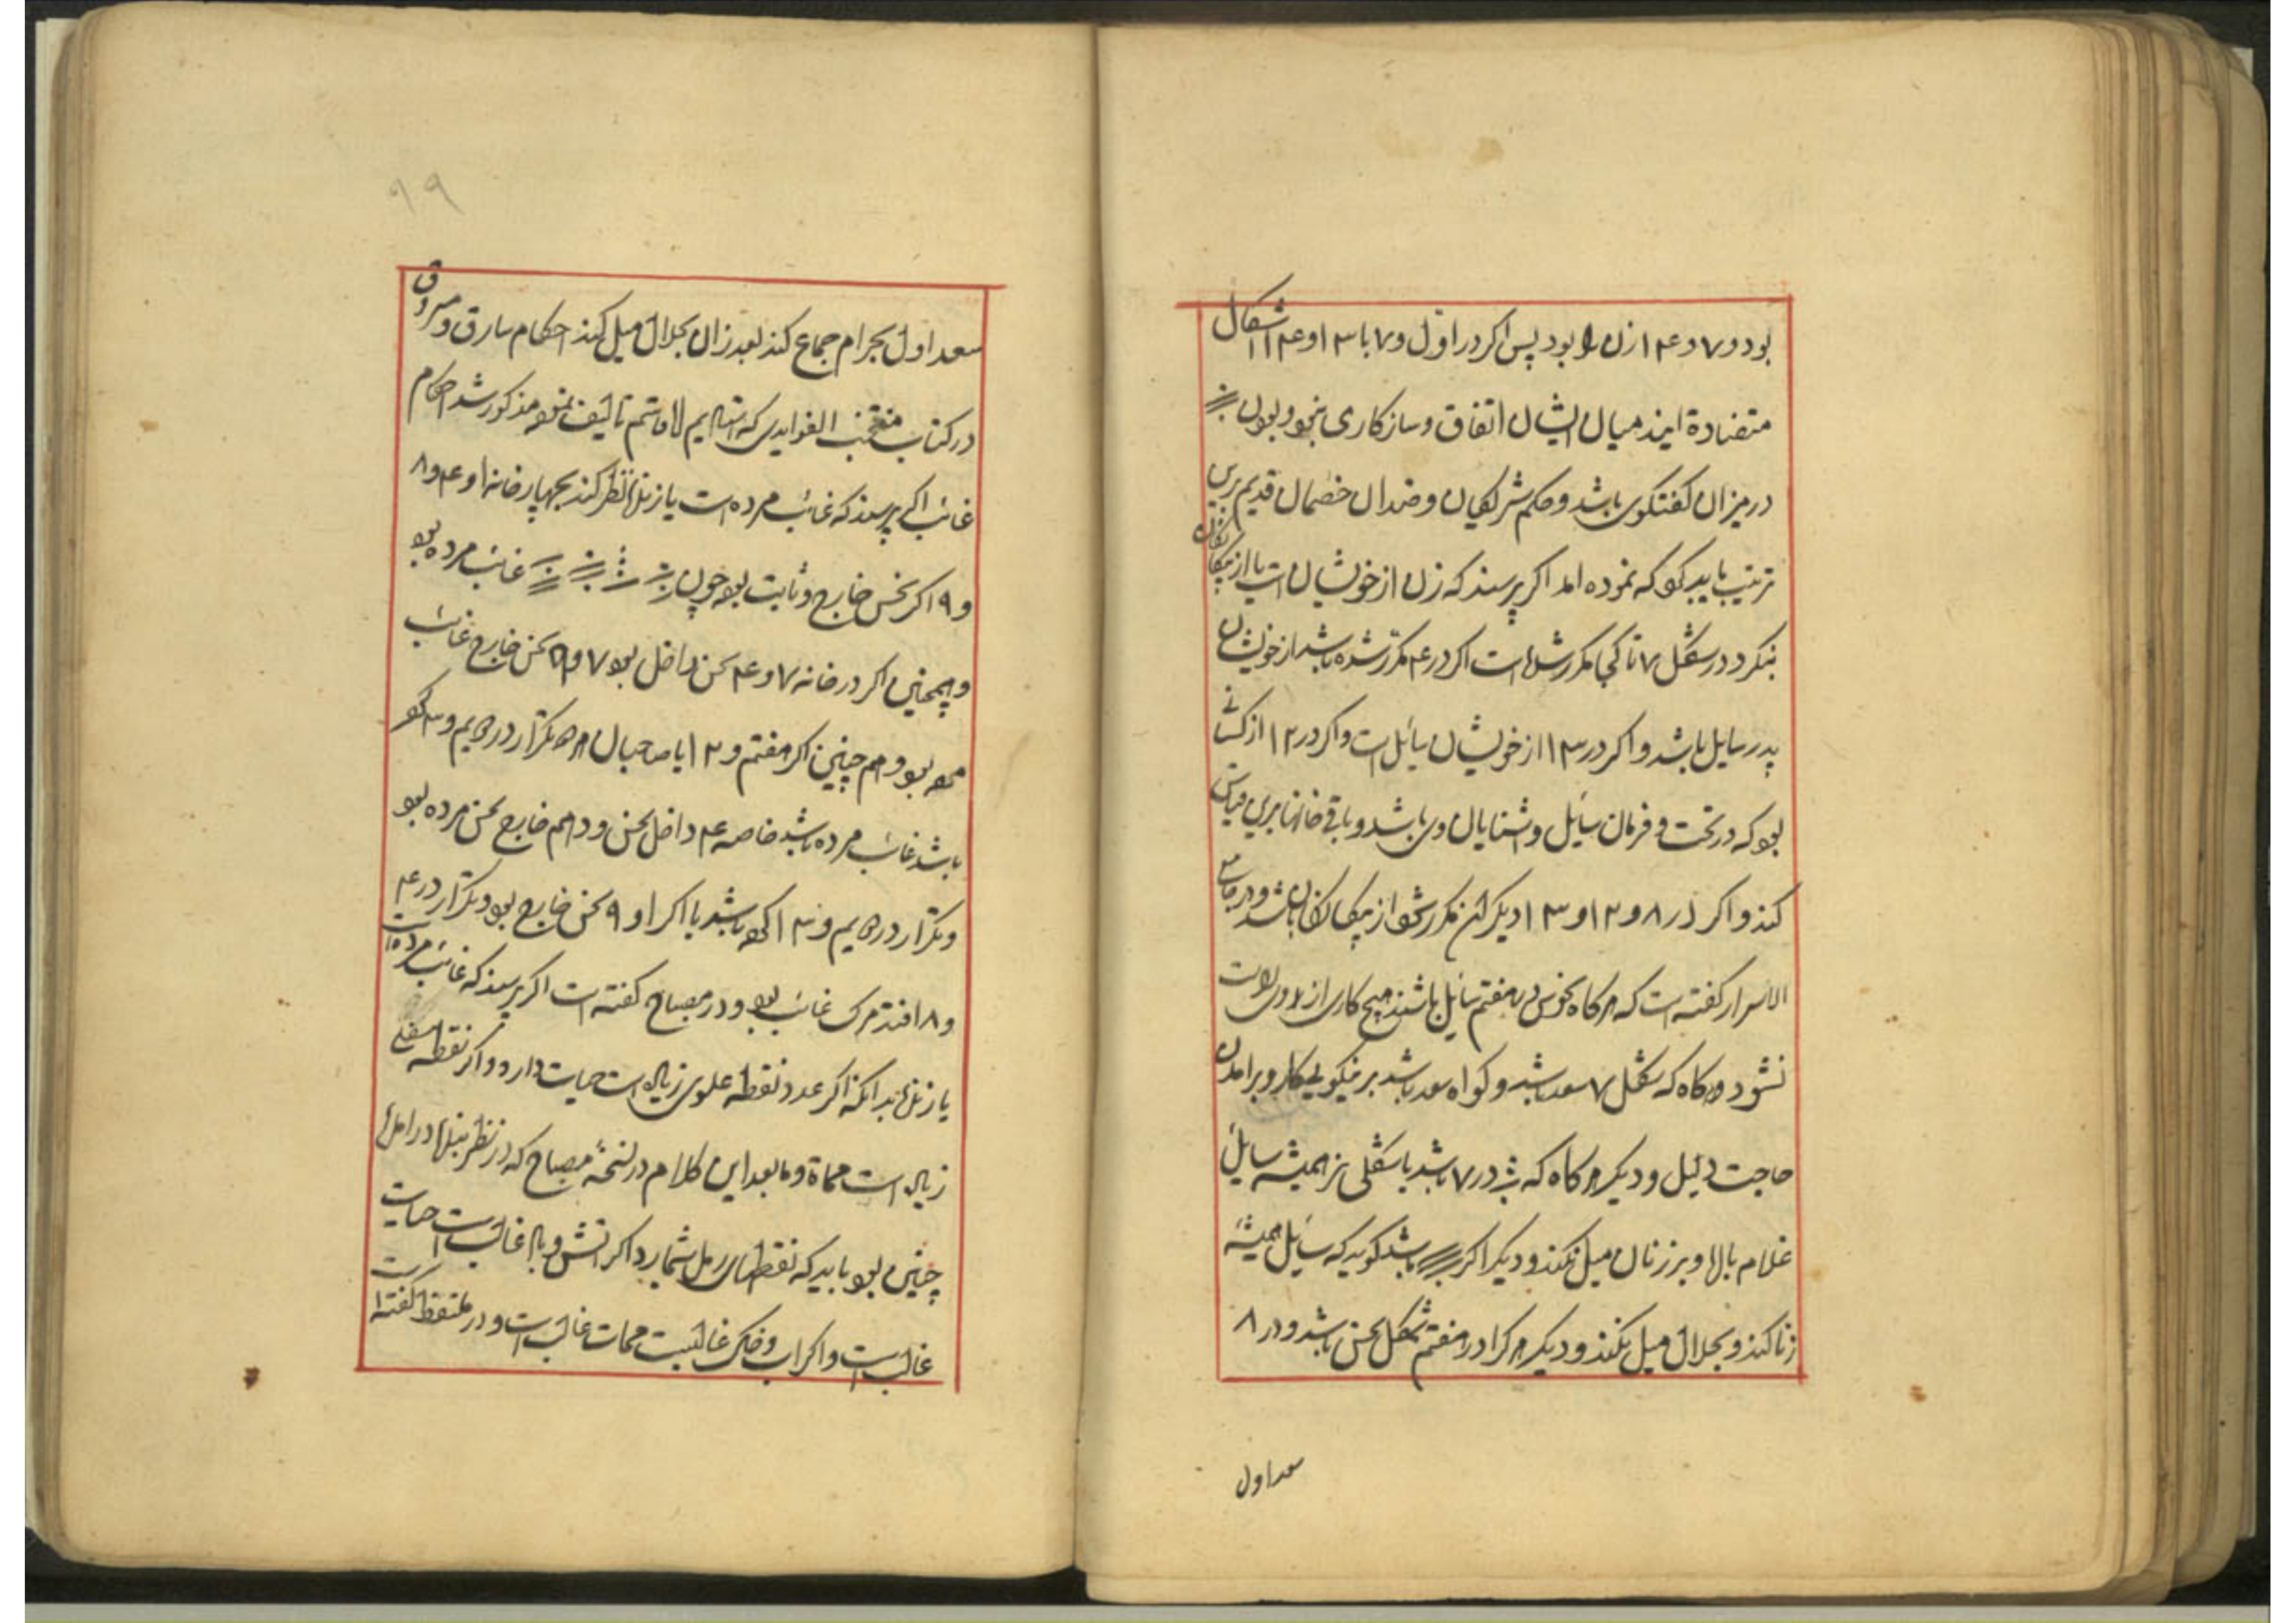 بود و ۷ و ۱۴ ازن بود پس اکر در اول و ۷ با ۱۳ و ۱۴ اشکال
متضادة ایند میان ایشان اتفاق و سازکاری نبود و بودن
در میزان کفتکوی باشد و حکم شریکان و ضدان خصمان قدیم برین
ترتیب باید کو که نموده امد اکر پرسند که زن از خویشان است یا از بیکانکان
بنکرد در شکل ۷ تا کجا مکرر شده است اکر در ۴ مکرر شده باشد از خویشان
پدر سایل باشد و اکر در ۱۳ از خویشان سائل است و اکر در ۱۲ از کسانی
بود که در تحت و فرمان سائل و اشنایان وی باشد و باقی خانها برین قیاس
کند و اکر در ۸ و ۱۲ و ۱۳ دیکر مکرر شود از بیکانکان باشد و در جامع
الاسرار کفته است که هرکاه نحوس در هفتم سائل باشند هیچ کاری از
نشود و هرکاه که شکل ۷ سعد باشد و کواه سعد باشد بر نیکویی کار و برامدن
حاجت دلیل و دیکر هرکاه که در ۷ باشد یا شکلی نر همیشه سایل
غلام باره و بر زنان میل نکند و دیکر اکر باشد کوید که سائل همیشه
زنا کند و بحلال میل نکند و دیکر هرکرا در هفتم شکل نحس باشد و در ۸
سعد اول
۹۹
سعد اول بحرام جماع کند بعد زان بحلال میل کند احکام سارق و مسروق
در کتاب منتخب الفوایدی که تالیف نمود مذکور شد احکام
غائب اکر پرسند که غائب مرده است یا زنده نظر کند بچهار خانه ۱ و ۴ و ۸
و ۹ اکر نحس خارج و ثابت بود چون غائب مرده بود
و همچنین اکر در خانه ۷ و ۴ نحس داخل بود ۷ و نحس خارج غائب
بود و هم چنین اکر هفتم و ۱۲ یا صاحبان تکرار در و ۳ کو
باشد غائب مرده باشد خاصه ۴ داخل نحس و دهم خارج نحس مرده بود
و تکرار در و ۱۳ باشد یا اکر ۱ و ۹ نحس خارج بود و تکرار در ۴
و ۸ افتد مرک غائب بود و در مصباح کفته است اکر پرسند که غائب مرده است
یا زنده بدانکه اکر عدد نقطه علوی زیاده است حیات دارد و اکر نقطه سفلی
زیاده است مماة و مابعد این کلام در نسخهٔ مصباح که در نظر بنده در امده
چنین بود باید که نقطهای رمل شمارد اکر اتش و باد غالبست حیات
غالب است و اکر اب و خاک غالبست ممات غالب است و در ملتقط کفته است